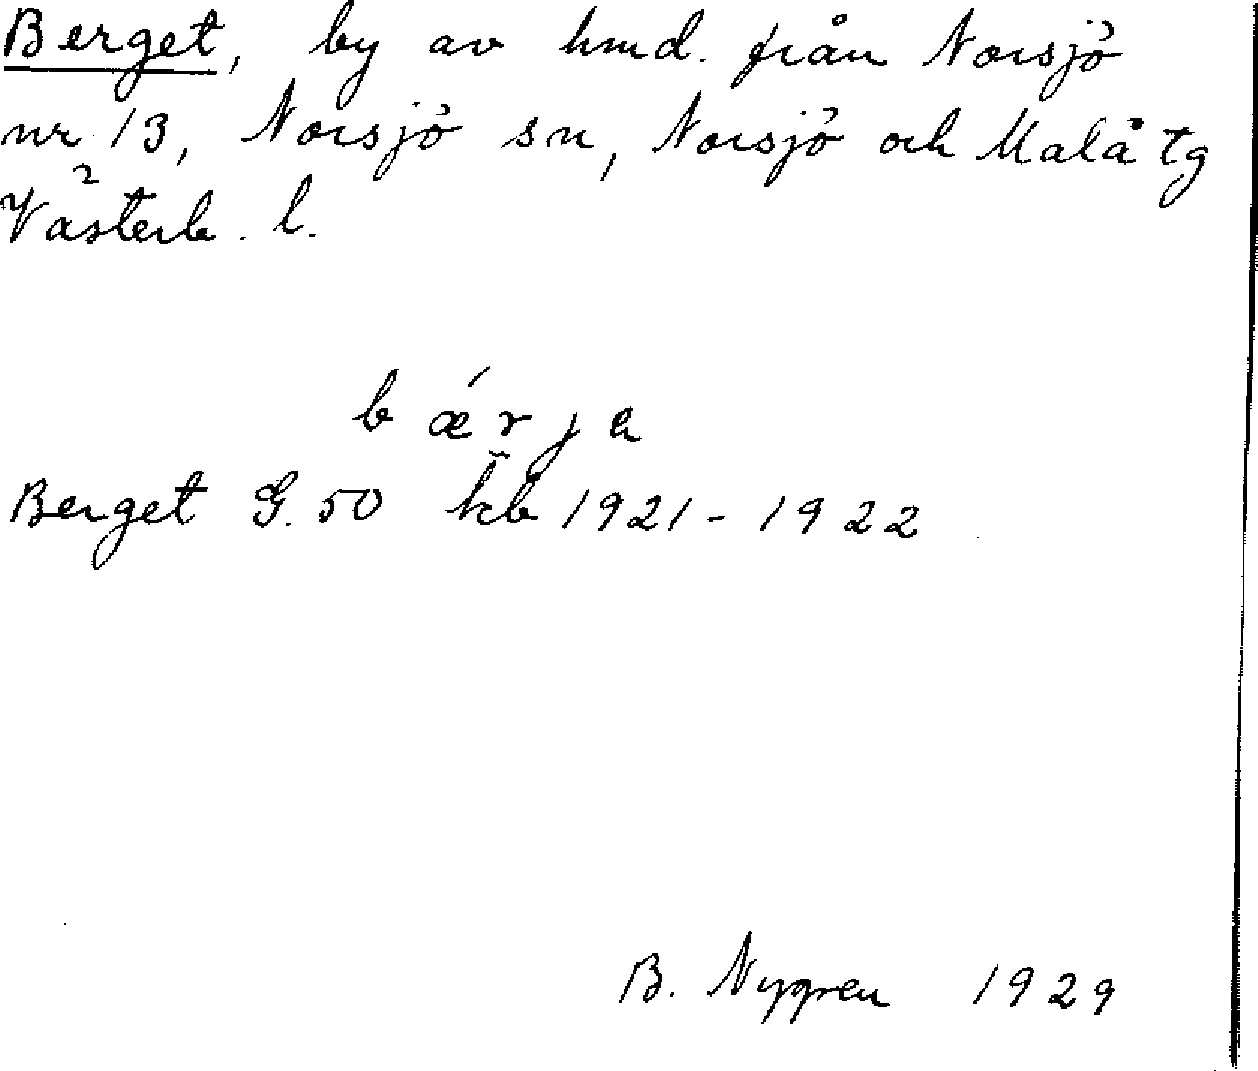 Berget, by av hmd. från Norsjö
nr 13, Norsjö sn, Norsjö och Malå tg
Västerb. l.
bǽrja
Berget G. 50 kb 1921-1922
B. Nygren 1929